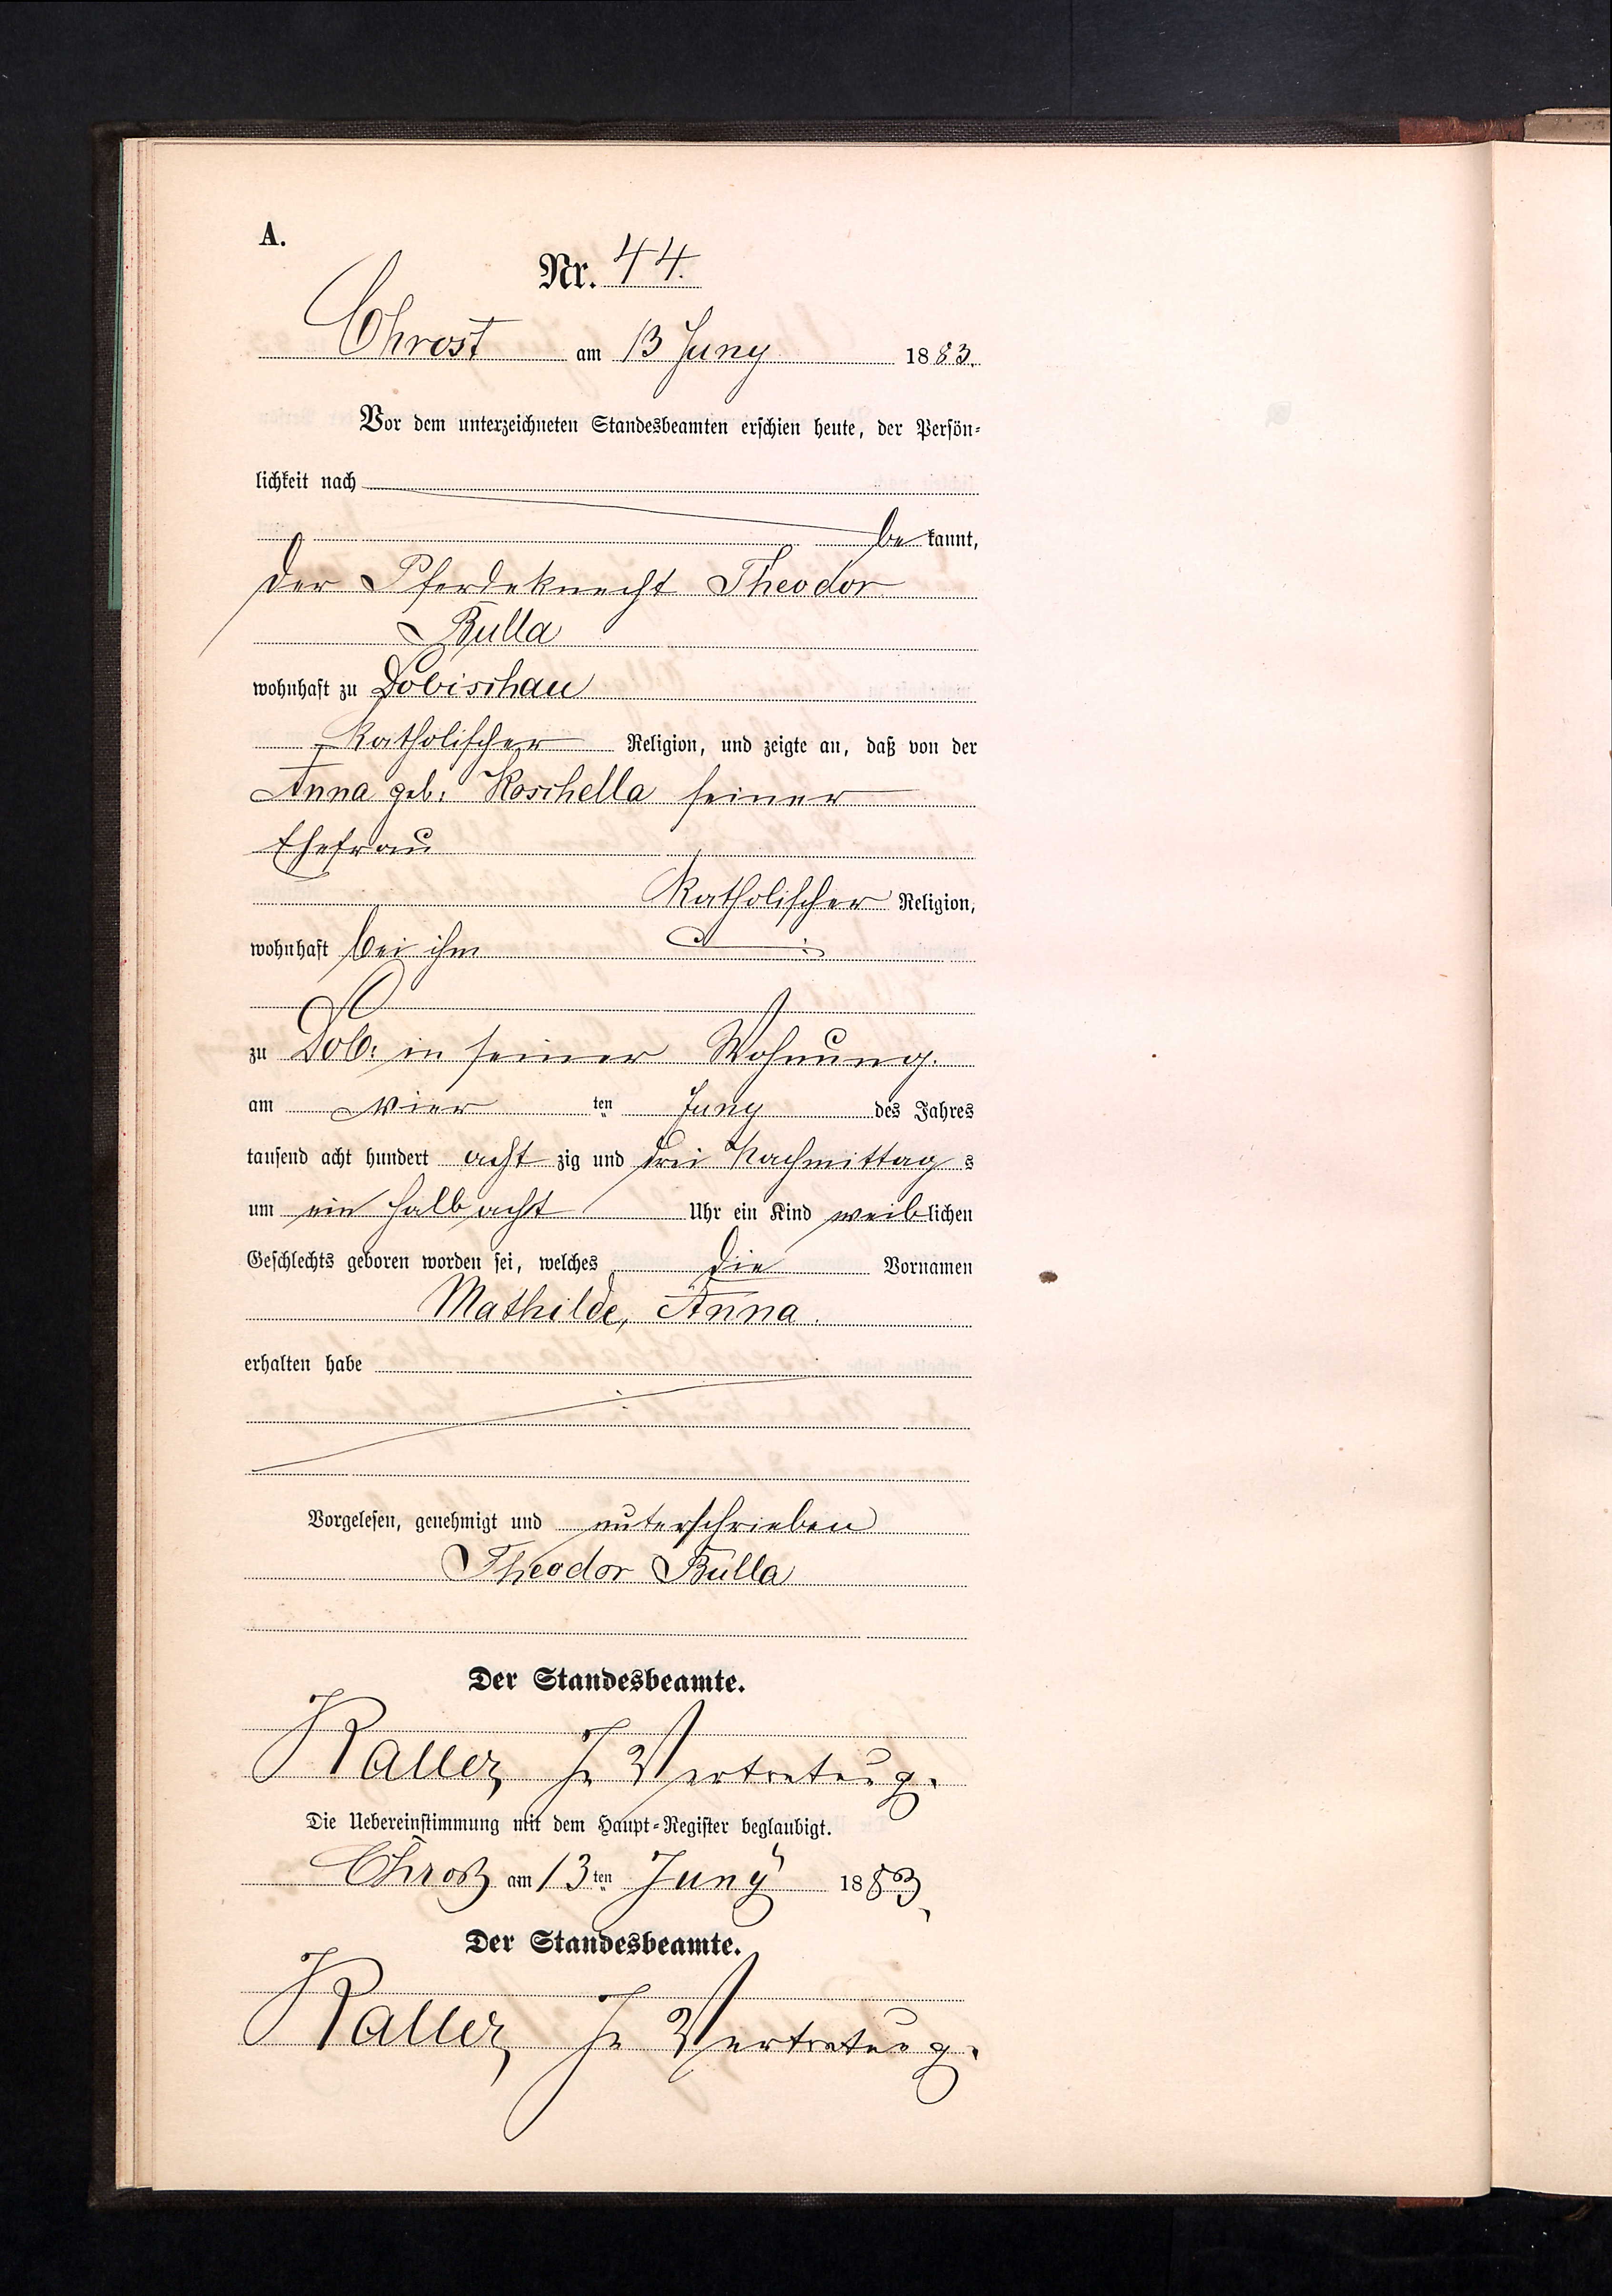 A.
Nr. 44.
Chrost am 13 Juny 1883.
Vor dem unterzeichneten Standesbeamten erschien heute, der Persön-
lichkeit nach
be kannt,
der Pferdeknecht Theodor
Bulla
wohnhaft zu Dobischau
Katholischer Religion, und zeigte an, daß von der
Anna geb: Koschella seiner
Ehefrau
Katholischer Religion,
wohnhaft bei ihm
zu Dob: in seiner Wohnung.
am vier ten Juny des Jahres
tausend acht hundert acht zig und drei Nachmittag s
um ein halb acht Uhr ein Kind weiblichen
Geschlechts geboren worden sei, welches die Vornamen
Mathilde, Anna.
erhalten habe
Vorgelesen, genehmigt und unterschrieben
Theodor Bulla
Der Standesbeamte.
Kaller In Vertretung.
Die Uebereinstimmung mit dem Haupt-Register beglaubigt.
Chrost am 13ten Juny 1883
Der Standesbeamte.
Kaller In Vertretung.